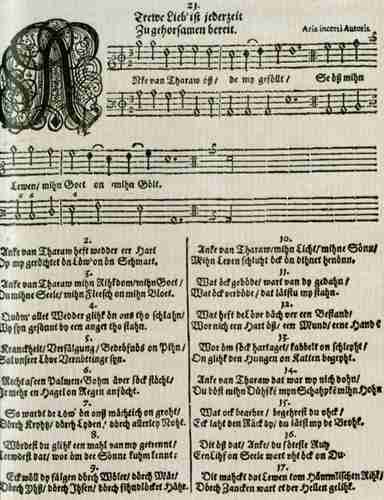 21.
Trewe Lieb' ist jederzeit
Zu gehorsamen bereit.
Aria incerti Autoris.
ANke van Tharaw öß / de my geföllt / Se öß mihn
Lewen / mihn Goet on mihn Gölt.
2.
Anke van Tharaw heft wedder eer Hart
Op my geröchtet ön Löw' on ön Schmart.
3.
Anke van Tharaw mihn Rihkdom / mihn Goet /
Du mihne Seele / mihn Fleesch on mihn Bloet.
4.
Quöm' allet Wedder glihk ön ons tho schlahn /
Wy syn gesönnt by een anger tho stahn.
5.
Kranckheit / Verfälgung / Bedröfnös on Pihn /
Sal unsrer Löve Vernöttinge syn.
6.
Recht as een Palmen-Bohm äver söck stöcht /
Je mehr en Hagel on Regen anföcht.
7.
So wardt de Löw' ön onß mächtich on groht /
Dörch Kryhtz / dörch Lyden / dörch allerley Noht.
8.
Wördest du glihk een mahl van my getrennt /
Leewdest dar / wor öm dee Sönne kuhm kennt;
9.
Eck wöll dy fälgen dörch Wöler / dörch Mär /
Dörch Yhß / dörch Ihsen / dörch fihndlöcket Hähr.
10.
Anke van Tharaw / mihn Licht / mihne Sönn /
Mihn Leven schluht öck ön dihnet henönn.
11.
Wat öck geböde / wart van dy gedahn /
Wat öck verböde / dat lätstu my stahn.
12.
Wat heft de Löve däch ver een Bestand /
Wor nich een Hart öß / een Mund / eene Hand?
13.
Wor öm söck hartaget / kabbelt on schleyht /
On glihk den Hungen on Katten begeyht.
14.
Anke van Tharaw dat war wy nich dohn /
Du böst mihn Dühfken myn Schahpken mihn Hohn.
15.
Wat öck begehre / begehrest du ohck /
Eck laht den Rock dy / du lätst my de Brohk.
16.
Dit öß dat / Anke / du söteste Ruh
Een Lihf on Seele wart uht öck on Du.
17.
Dit mahckt dat Lewen tom Hämmlischen Rihk /
Dörch Zancken wart et der Hellen gelihk.